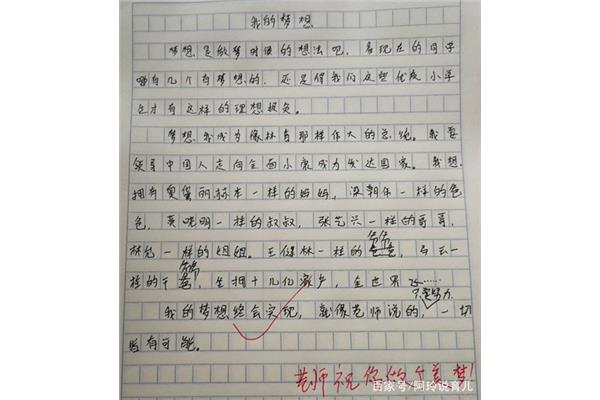 我的梦想
梦想是做梦时候的想法吧，看现在的同学
哪有几个有梦想的，还是像我们这些优质小学
生才有这样的理想抱负。
梦想我成为像林肯那样伟大的总统。我要
领导中国人走向全面小康成为发达国家。我想
拥有奥黛丽赫本一样的妈妈，梁朝伟一样的爸
爸，黄晓明一样的叔叔，张艺兴一样的哥哥，
林允一样的姐姐。王健林一样的爸爸 爷爷，马云一
样的干爹 爷爷，坐拥十几亿家产，全世界……
只要努力
我的梦想终会实现，就像老师说的，一切
皆有可能。
老师祝你的个美梦！
百家号/阿玲说育儿